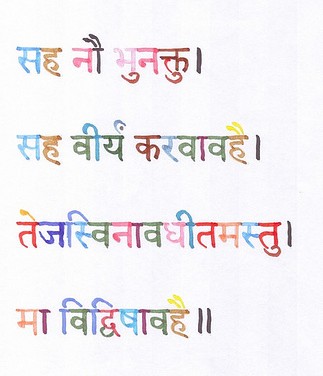 सह नौ भुनक्तु।
सह वीर्यं करवावहै।
तेजस्विनावधीतमस्तु।
मा विद्विषावहै॥